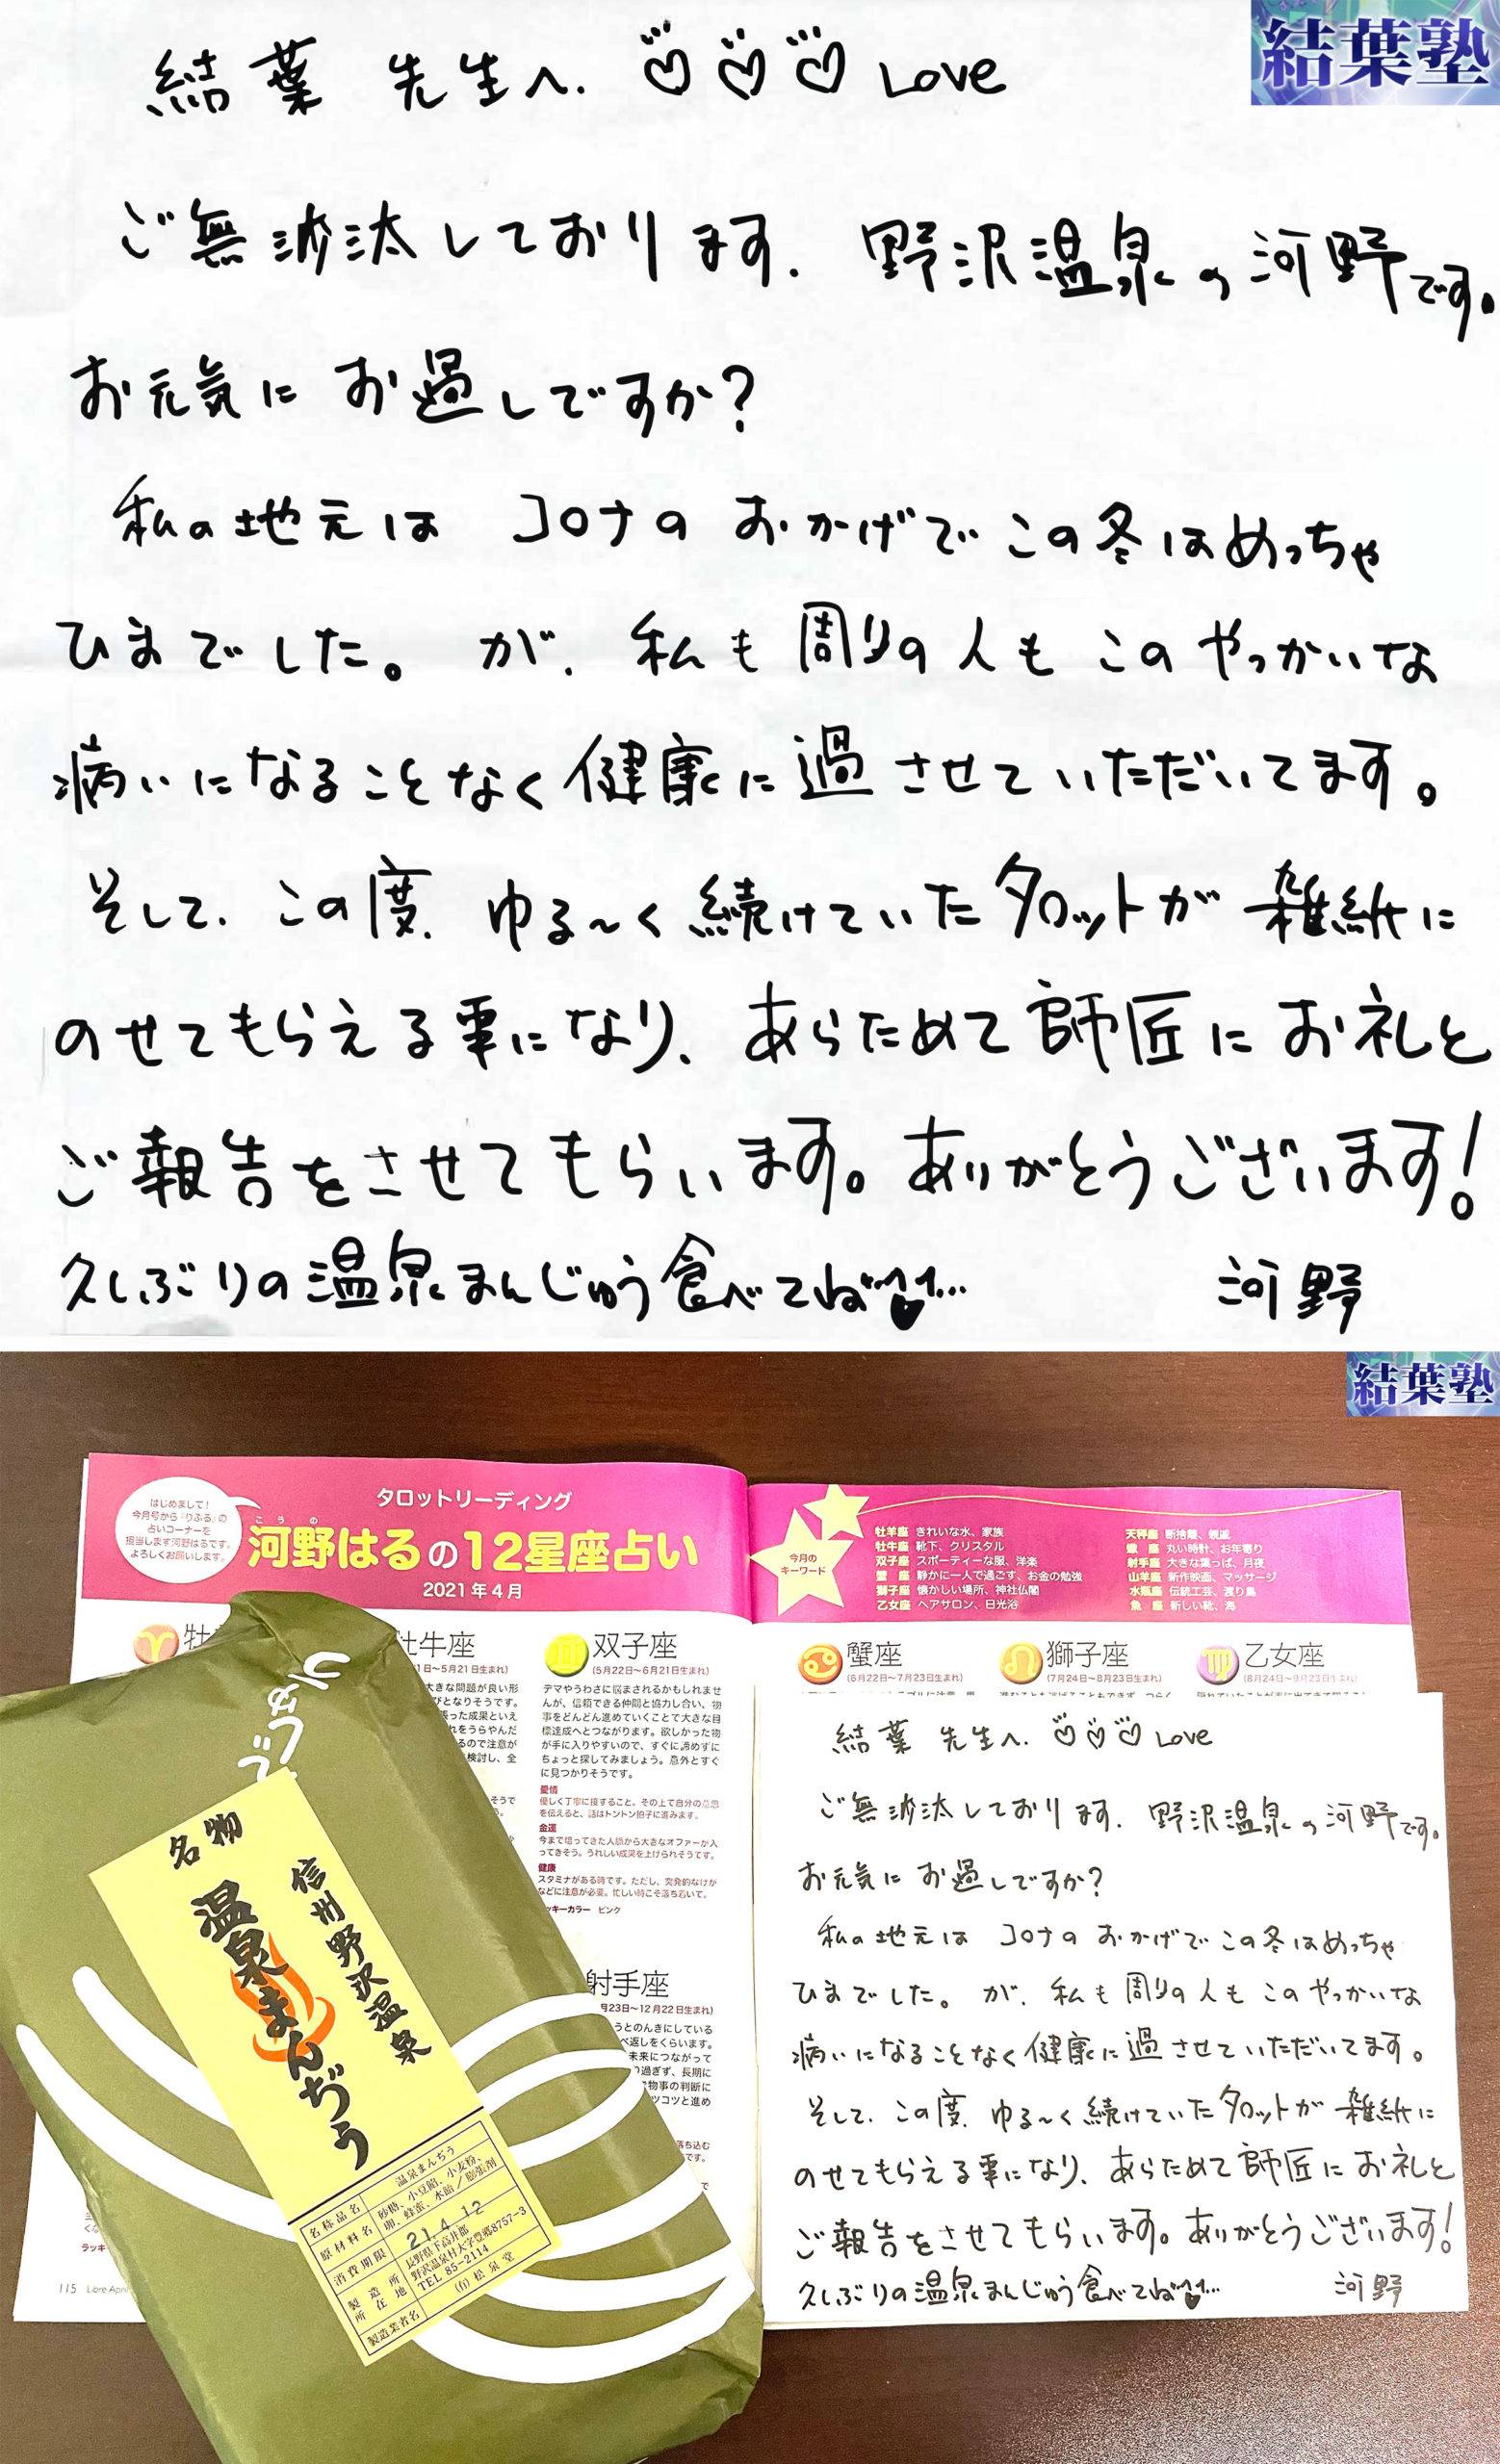 結葉塾
結葉 先生へ. ♡♡♡ Love
ご無沙汰しております. 野沢温泉の河野です。
お元気に お過しですか?
私の地元は コロナの おかげで この冬はめっちゃ
ひまでした。が、私も周りの人も このやっかいな
病いになることなく健康に過させていただいてます。
そして、この度、ゆる〜く続けていたタロットが雑紙に
のせてもらえる事になり、あらためて師匠にお礼と
ご報告をさせてもらいます。ありがとうございます!
久しぶりの温泉まんじゅう食べてね
河野
結葉塾
はじめまして!
今月号から「りふる」の
占いコーナーを
担当します河野はるです。
よろしくお願いします。
タロットリーディング
こうの
河野はるの12星座占い
2021年4月
今月の
キーワード
牡羊座 きれいな水、家族
牡牛座 靴下、クリスタル
双子座 スポーティーな服、洋楽
蟹 座 静かに一人で過ごす、お金の勉強
獅子座 懐かしい場所、神社仏閣
乙女座 ヘアサロン、日光浴
天秤座 断捨離、親戚
蠍 座 丸い時計、お年寄り
射手座 大きな葉っぱ、月夜
山羊座 新作映画、マッサージ
水瓶座 伝統工芸、渡り鳥
魚 座 新しい靴、海
牡
牡牛座
1日〜5月21日生まれ)
大きな問題が良い形
びとなりそうです。
張った成果といえ
れをうらやんだ
るので注意が
検討し、全
双子座
(5月22日〜6月21日生まれ)
デマやうわさに悩まされるかもしれませ
んが、信頼できる仲間と協力し合い、物
事をどんどん進めていくことで大きな目
標達成へとつながります。欲しかった物
が手に入りやすいので、すぐに諦めずに
ちょっと探してみましょう。意外とすぐ
に見つかりそうです。
愛情
優しく丁寧に接すること。その上で自分の意思
を伝えると、話はトントン拍子に進みます。
金運
今まで培ってきた人脈から大きなオファーが入
ってきそう。うれしい成果を上げられそうです。
健康
スタミナがある時です。ただし、突発的なけが
などに注意が必要。忙しい時こそ落ち着いて。
ッキーカラー ピンク
蟹座
(6月22日〜7月23日生まれ)
獅子座
(7月24日〜8月23日生まれ)
乙女座
(8月24日〜9月23日生まれ)
射手座
月23日〜12月22日生まれ)
うとのんきにしている
ぺ返しをくらいます。
未来につながって
り過ぎず、長期に
物事の判断に
ツコツと進め
落ち込む
です。
ラッキ
115 Libre April
名物
信州野沢温泉
温泉まんぢう
名称品名 温泉まんぢう
原材料名 砂糖、小豆餡、小麦粉、
卵、蜂蜜、水飴/膨張剤
消費期限 21.4.12
製造所所在地 長野県下高井郡
野沢温泉村大字豊郷8757-3
TEL 85-2114
製造業者名 (有)松泉堂
結葉 先生へ. ♡♡♡ Love
ご無沙汰しております. 野沢温泉の河野です。
お元気に お過しですか?
私の地元は コロナの おかげで この冬はめっちゃ
ひまでした。が、私も周りの人も このやっかいな
病いになることなく健康に過させていただいてます。
そして、この度、ゆる〜く続けていたタロットが雑紙に
のせてもらえる事になり、あらためて師匠にお礼と
ご報告をさせてもらいます。ありがとうございます!
久しぶりの温泉まんじゅう食べてね
河野